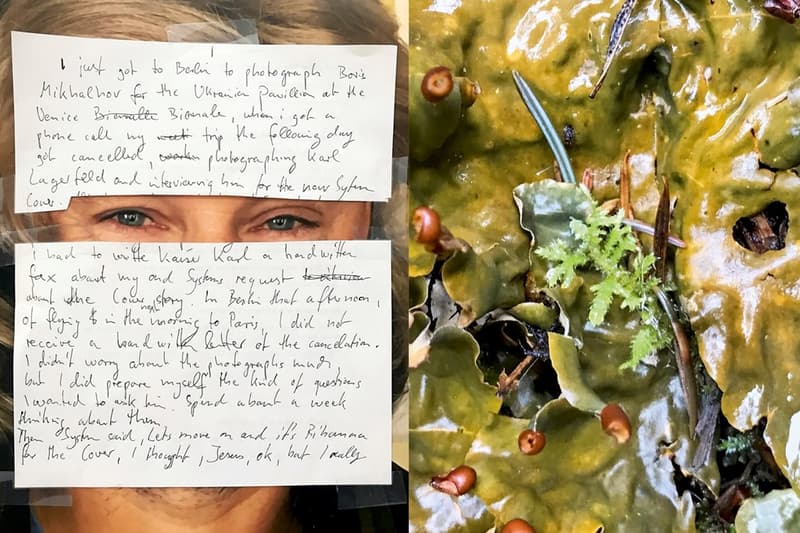 I just got to Berlin to photograph Boris
Mikhailhov for the Ukranian Pavillion at the
Venice Biennalle Bienale, when i got a
phone call my trip the following day
got cancelled, photographing Karl
Lagerfeld and interviewing him for the new System
Cover.
i had to write Kaiser Karl a handwritten
fax about my and Systems request
about the Cover story. In Berlin that afternoon,
of flying in the morning to Paris, I did not
receive a handwritten letter of the cancelation.
I didn't worry about the photographs much
but I did prepare myself the kind of questions
I wanted to ask him. Spend about a week
thinking about them.
Then System said, Lets move on and it's Rihanna
for the Cover, I thought, Jesus, ok, but I really